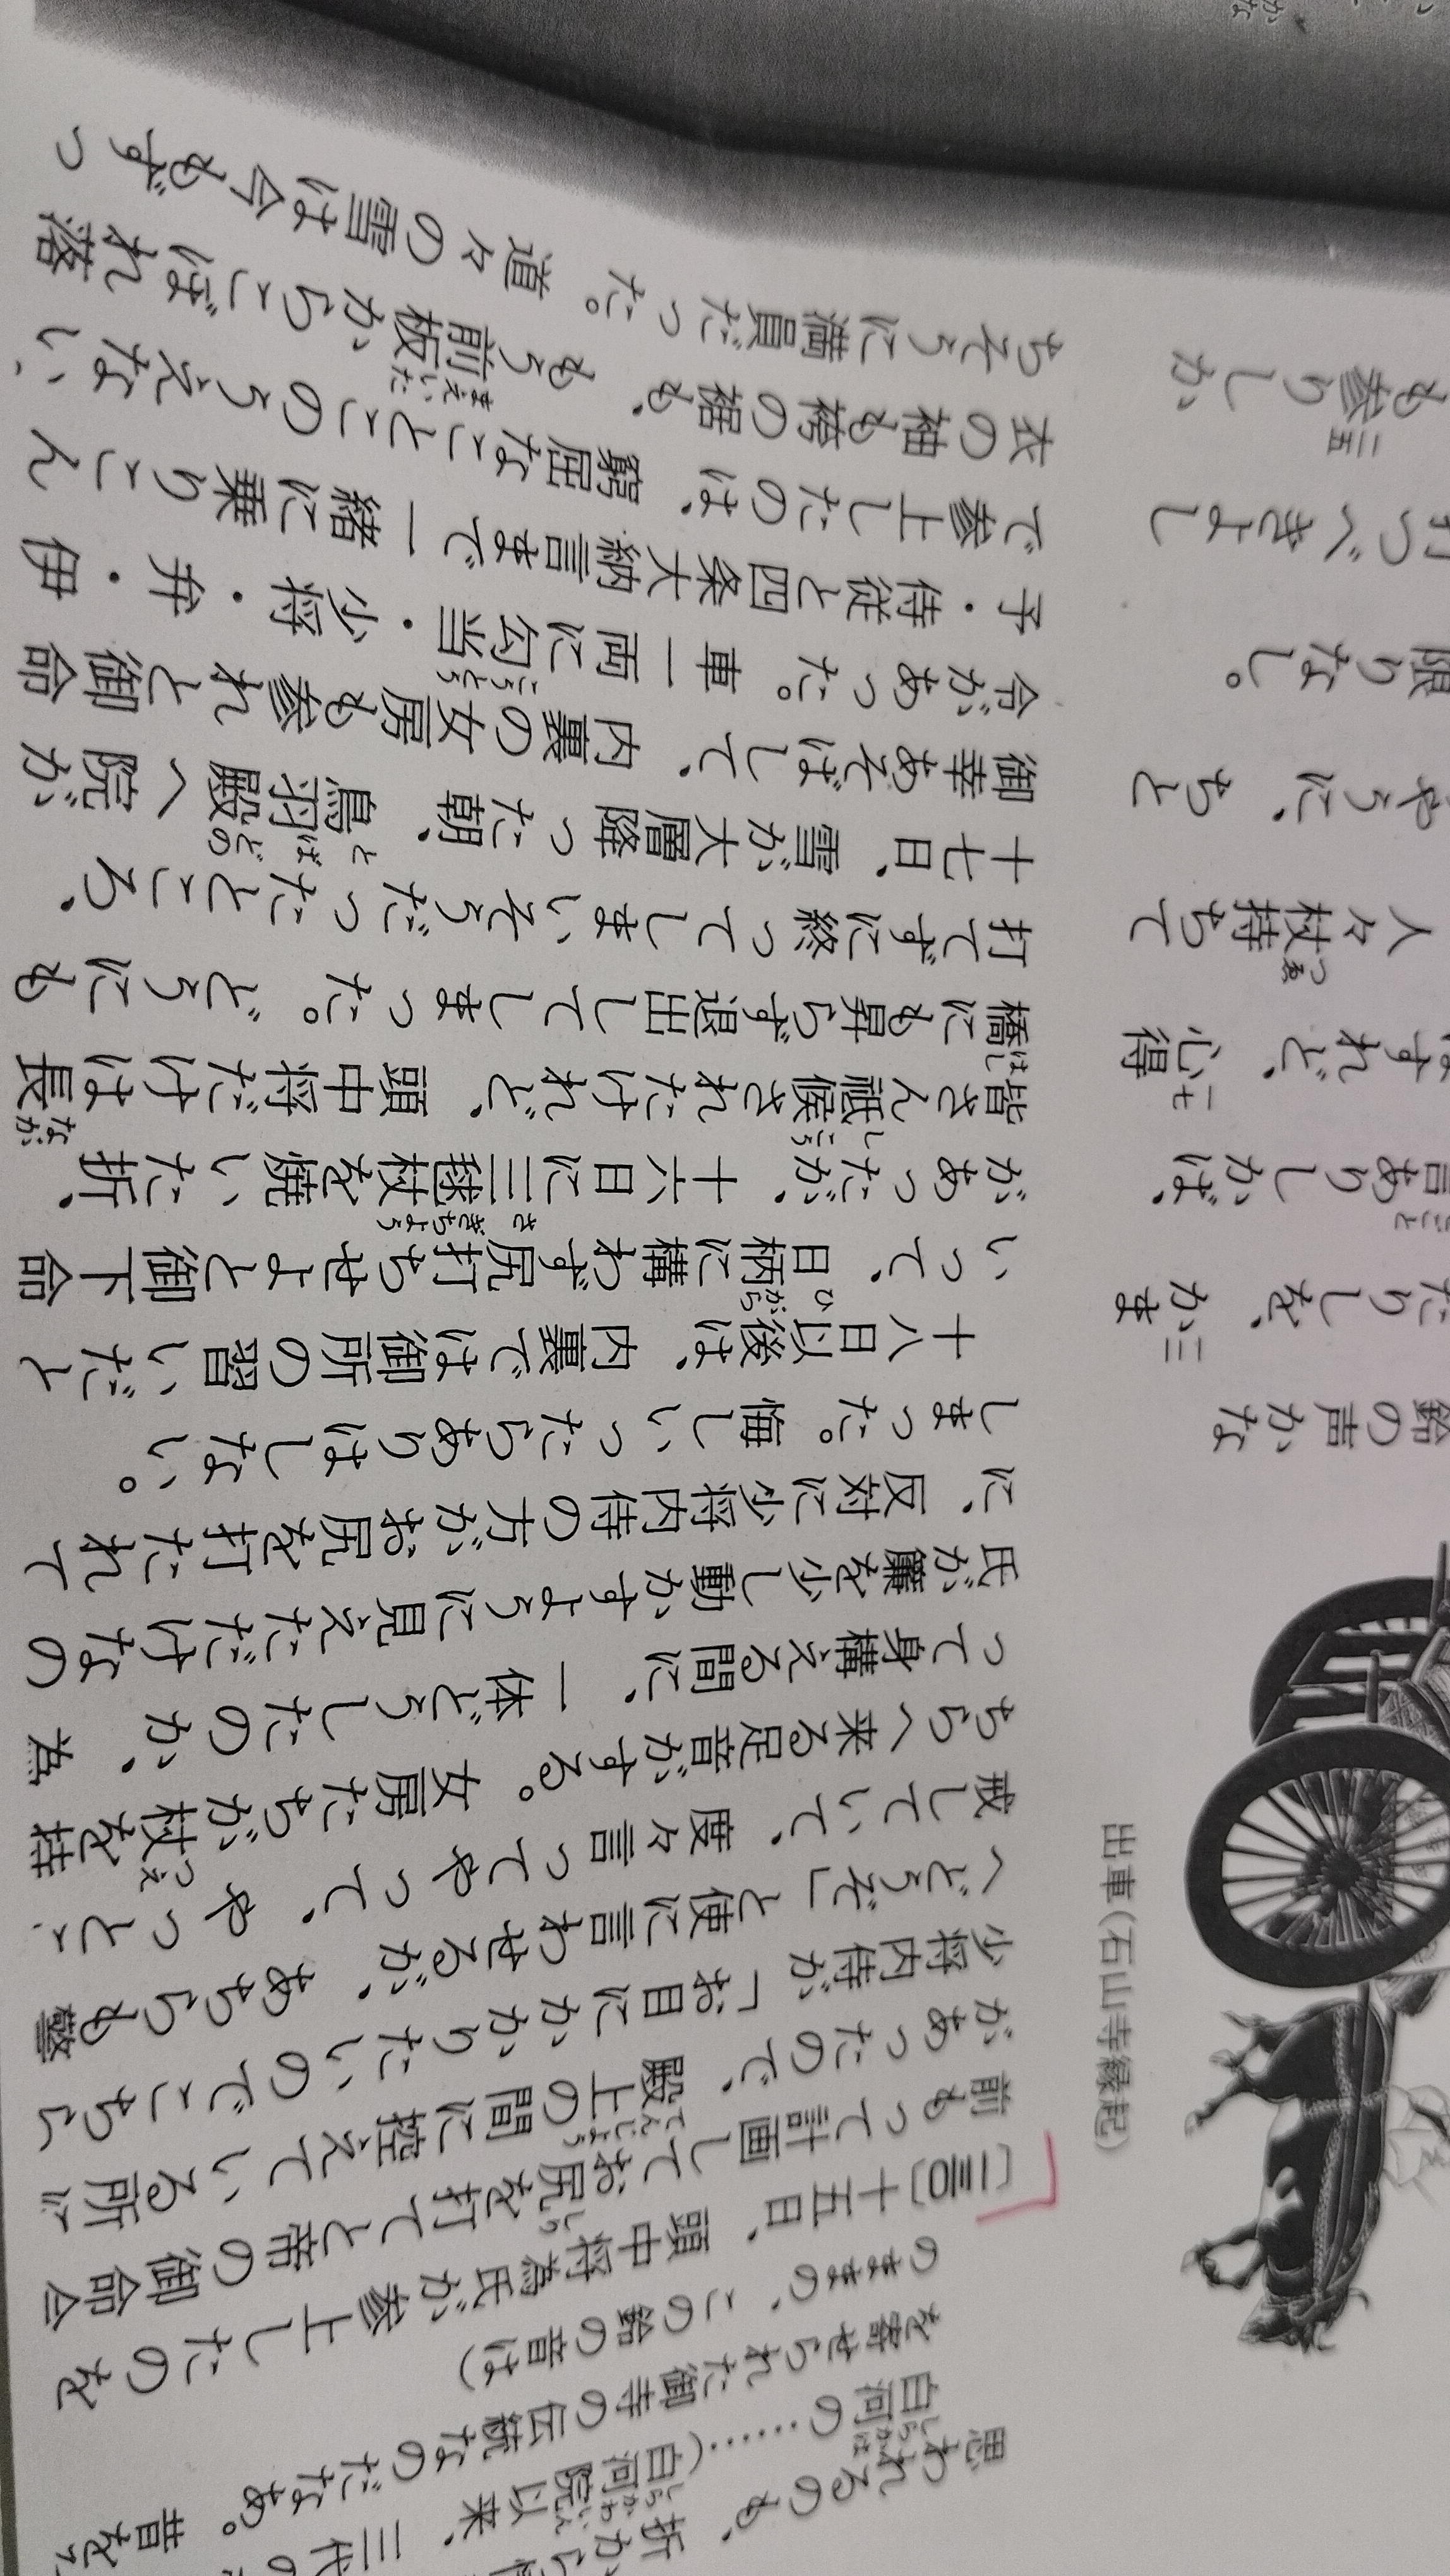 鈴の声かな
たりしを、かま
言ありしかば、
はすれど、心得
人々杖持ちて
やうに、ちと
限りなし。
打つべきよし
も参りしか
出車(石山寺縁起)
思われるのも、折から
白河の……(白河院以来、三代の
を寄せられた御寺の伝統なのだなあ。昔を
のままの、この鈴の音は)
十五日、頭中将為氏が参上したのを
前もって計画してお尻を打てと帝の御命令
があったので、殿上の間に控えている所に
少将内侍が「お目にかかりたいのでこちら
へどうぞ」と使に言わせるが、あちらも警
戒していて、度々言ってやって、やっと、
ちらへ来る足音がする。女房たちが杖を持
って身構える間に、一体どうしたのか、為
氏が簾を少し動かすように見えただけなの
に、反対に少将内侍の方がお尻を打たれて
しまった。悔しいったらありはしない。
十八日以後は、内裏では御所の習いだと
いって、日柄に構わず尻打ちせよと御下命
があったが、十六日に三毬杖を焼いた折、
皆さん祗候されたけれど、頭中将だけは長
橋にも昇らず退出してしまった。どうにも
打てずに終ってしまいそうだったところ、
十七日、雪が大層降った朝、鳥羽殿へ院が
御幸あそばして、内裏の女房も参れと御命
令があった。車一両に勾当・少将・弁・伊
子・侍従と四条大納言まで一緒に乗りこん
で参上したのは、窮屈なことこのうえない、
衣の袖も袴の裾も、もう前板からこぼれ落
ちそうに満員だった。道々の雪は今もずっ